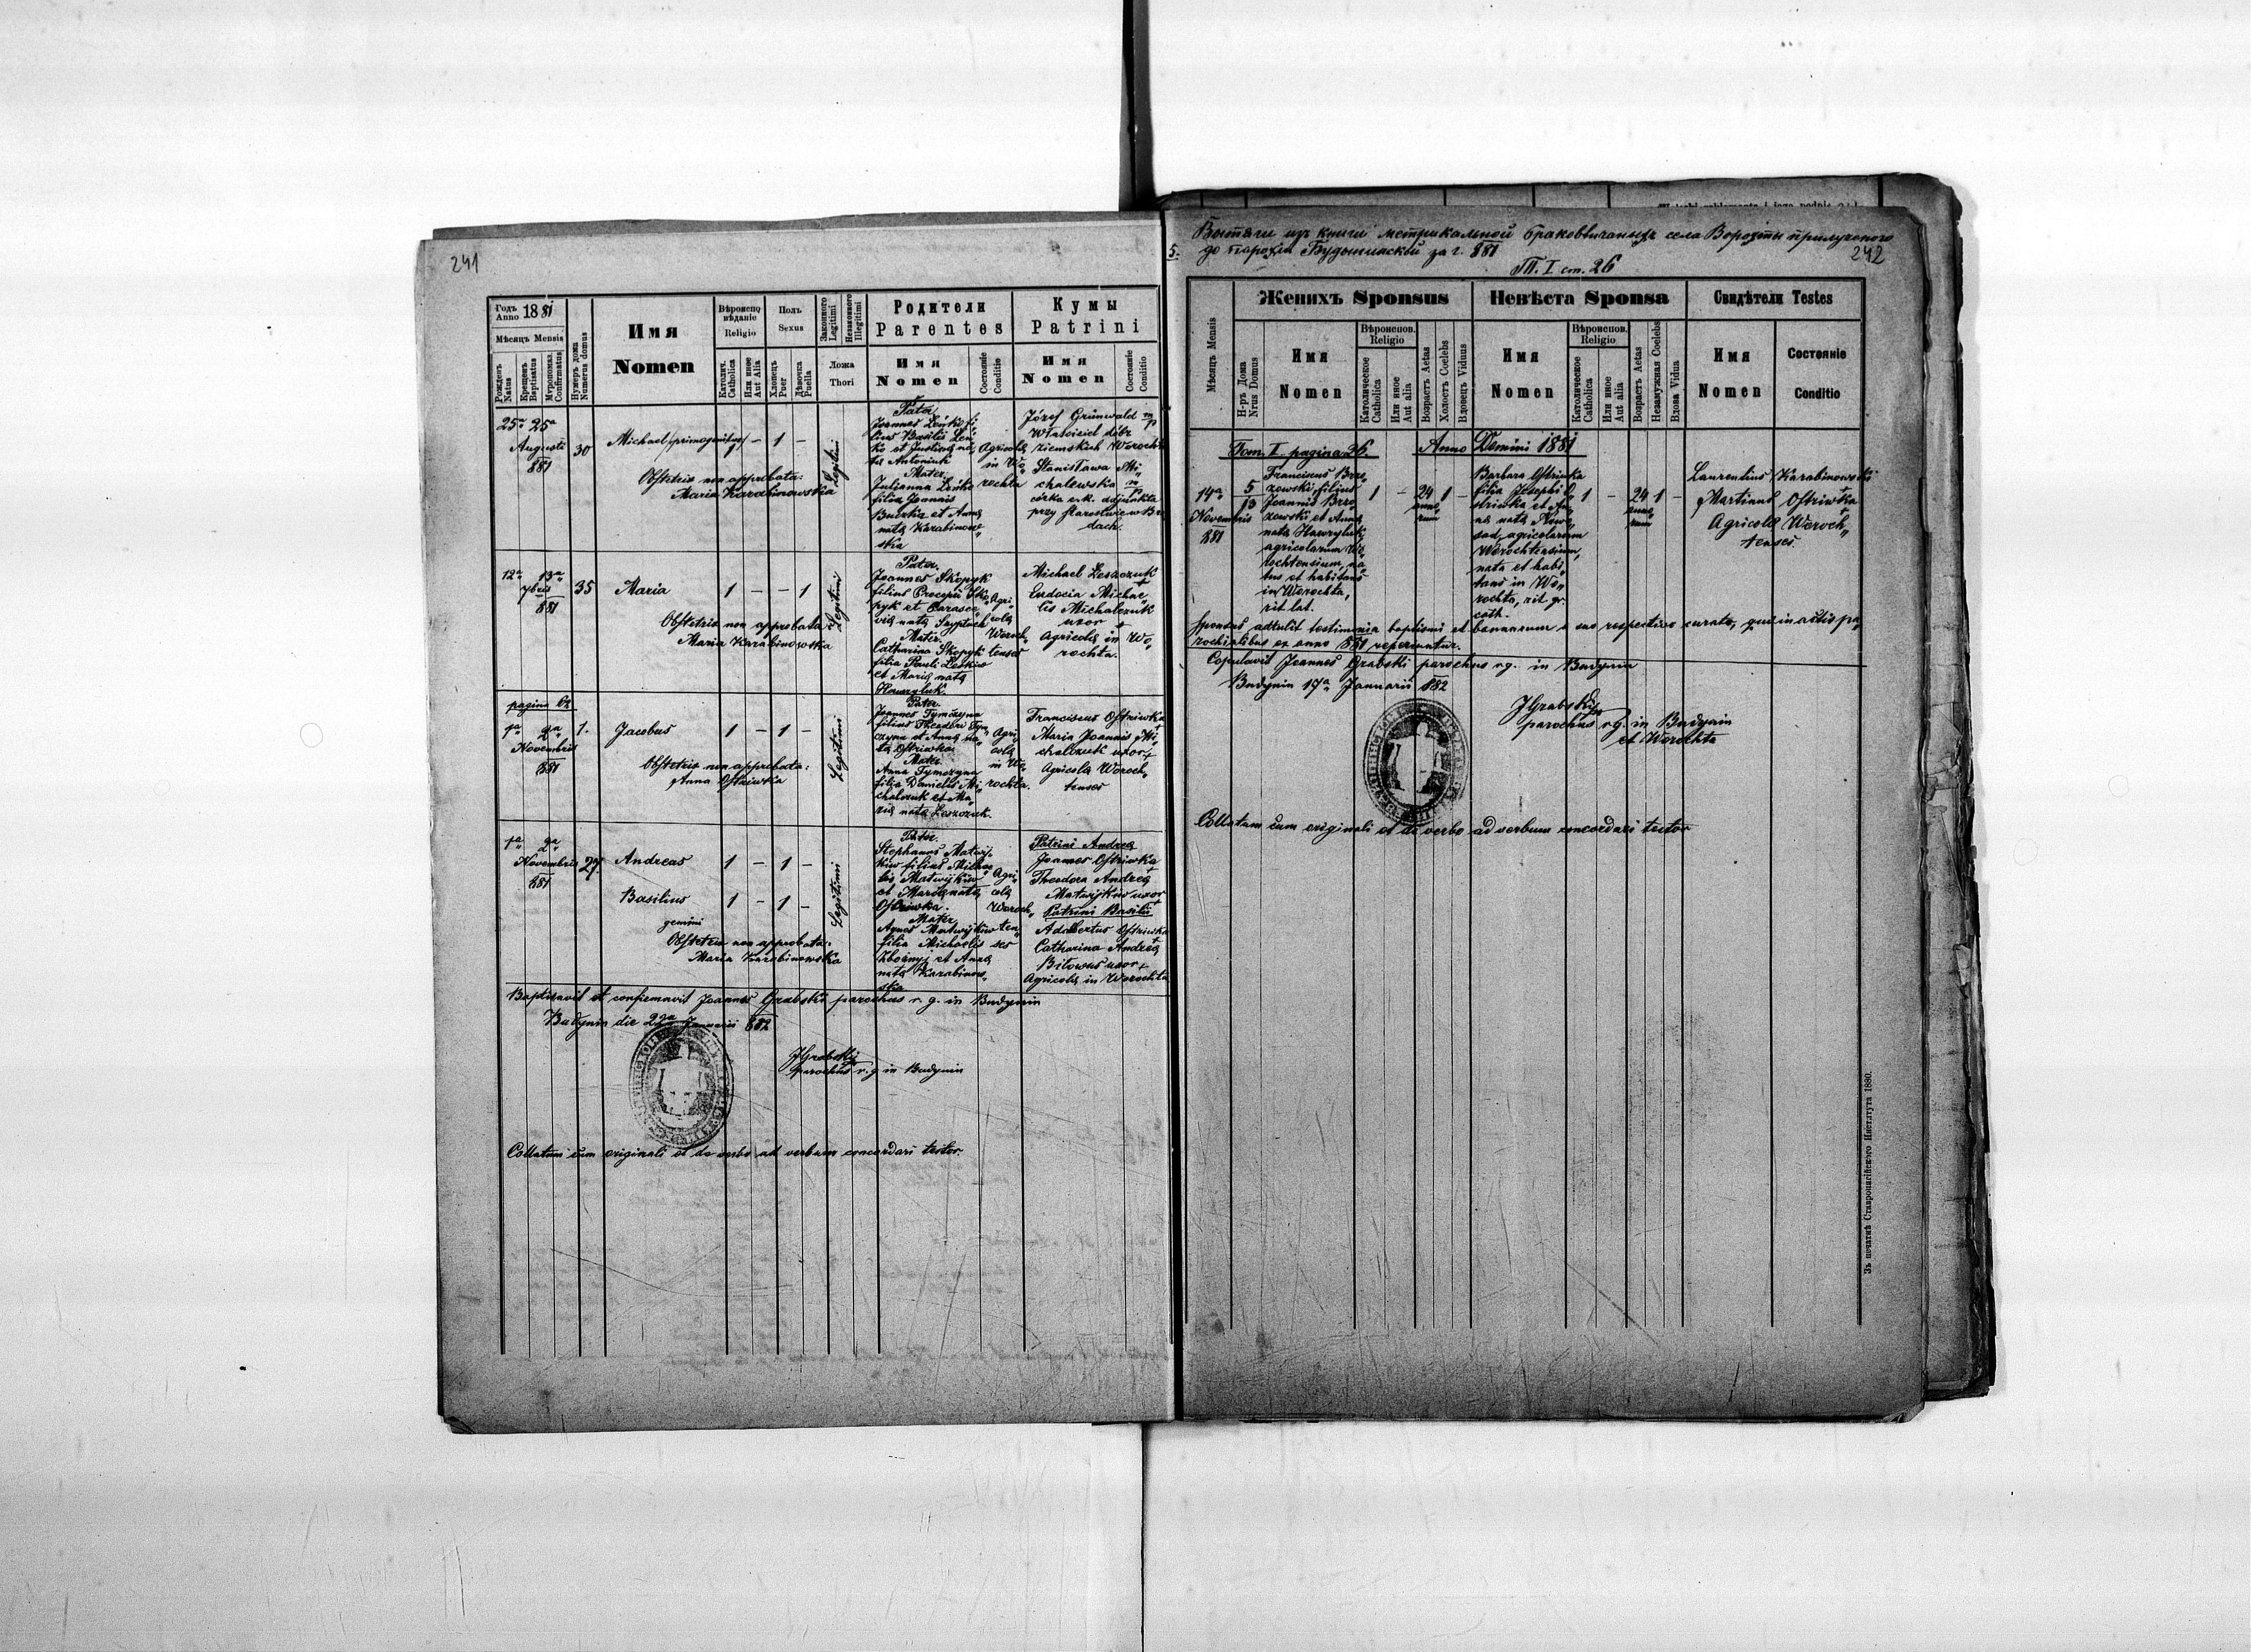 241
Годъ Anno 1881
Мѣсяцъ Mensis
Рожденъ Natus
Крещенъ Baptisatus
Мѵропомаз. Confirmatus
Нумеръ дома Numerus domus
Имя Nomen
Вѣроисповѣданіе Religio
Католич. Catholica
Или иное Aut Alia
Полъ Sexus
Хлопецъ Puer
Дѣвочка Puella
Законного Legitimi
Незаконного Illegitimi
Ложа Thori
Родители Parentes
Имя Nomen
Состояніе Conditio
Кумы Patrini
Имя Nomen
Состояніе Conditio
25a 25a
Augusti
881
30
Michael (primogenitus) 1 – 1 –
Obstetrix non approbata:
Maria Karabinowska
Legitimi
Pater
Joannes Leńko fi„
lius Basilii Leń„
ko et Justinę na„
tę Antoniuk
Mater
Julianna Leńko
filia Joannis
Buczko et Annę
natę Karabinow„
ska
Agricolę
in Wo„
rochta
Józef Grünwald mp
Właściciel dóbr
ziemskich Worochta
Stanisława Mi„
chalewska mp
córka c.k. adjunkta
przy starostwie w Bro
dach.
12a 13a
7bris
881
35
Maria 1 – – 1
Obstetrix non approbata
Maria Karabinowska
Legitimi
Pater
Joannes Skopyk
filius Procopii Sko„
pyk et Parasce„
vię natę
Mater
Catharina Skopyk
filia Pauli
et Marię natę
Hawryluk.
Agri„
colę
Woroch„
tenses
Michael Leszczuk
+
Eudocia Michae„
lis Michalczuk
uxor +
Agricolę in Wo„
rochta.
pagina 62
1a 2a
Novembris
881
1.
Jacobus 1 – 1 –
Obstetrix non approbata:
Anna Ostriwka
Legitimi
Pater.
Joannes Tymczyna
filius Theodori Tym„
czyna et Annę na„
tę Ostriwka
Mater
Anna Tymczyna
filia Danielis Mi„
chalczuk et Ma„
rię natę Leszczuk.
Agri„
colę
in Wo„
rochta.
Franciscus Ostriwka
Maria Joannis Mi„
chalczuk uxor +
Agricolę Woroch„
tenses
1a 2a
Novembris
881
27.
Andreas 1 – 1 –
Basilius 1 – 1 –
gemini
Obstetrix non approbata:
Maria Karabinowska
Legitimi
Pater.
Stephanus Matwij„
kiw filius Michae„
lis Matwijkiw
et Marię natę
Ostriwka.
Mater
Agnes Matwijkiw
filia Michaelis
et Annę
natę Karabinow„
ska
Agri„
colę
Woroch„
ten„
ses
Patrini Andreę
Joannes Ostriwka
+
Theodora Andreę
Matwijkiw uxor
+
Patrini Basilii
Adalbertus Ostriwka
+
Catharina Andreę
Bilowus uxor +
Agricolę in Worochta
Baptisavit et confirmavit Joannes Grabski parochus r. g. in Budynin
Budynin die 22a Januarii 882
JGrabski
parochus r. g. in Budynin
Collatum cum originali et de verbo ad verbum concordari testor.
5.
Вытяги изъ книги метрикальной браковѣнчаныхъ села Ворохты прилученого
до парохіи Будынинской за г. 881
242
Т. I ст. 26
Мѣсяцъ Mensis
Женихъ Sponsus
Н-ръ Дома Nrus Domus
Имя Nomen
Вѣроиспов. Religio
Католическое Catholica
Или иное Aut alia
Возрастъ Aetas
Холостъ Coelebs
Вдовецъ Viduus
Невѣста Sponsa
Имя Nomen
Вѣроиспов. Religio
Католическое Catholica
Или иное Aut alia
Возрастъ Aetas
Незамужная Coelebs
Вдова Vidua
Свидѣтели Testes
Имя Nomen
Состояніе Conditio
Tom I. pagina 26. Anno Domini 1881
14a
Novembris
881
5
13
Franciscus Brzo„
zowski, filius
Joannis Brzo
zowski et Annę
natę Hawryluk,
agricolarum Wo„
rochtensium, na„
tus et habitans
in Worochta,
rit. lat.
1 – 24 anno„ rum 1 –
Barbara Ostriwka
filia Josephi O„
striwka et An„
nę natę Nowo„
sad, agricolarum
Worochtensium,
nata et habi„
tans in Wo„
rochta, rit. gr.
cath.
1 – 24 anno„ rum 1 –
Laurentius Karabinowski
+
Martinus Ostriwka
+
Agricolę Woroch„
tenses.
Sponsus adtulit testimonia baptismi et bannorum a suo respectivo curato, quę in actis pa„
rochialibus ex anno 881 reperiuntur.
Copulavit Joannes Grabski parochus r.g. in Budynin
Budynin 17a Januarii 882
JGrabski
parochus r.g. in Budynin
et Worochta
Collatum cum originali et de verbo ad verbum concordari testor
Зъ печатнѣ Ставропигійского Института 1880.